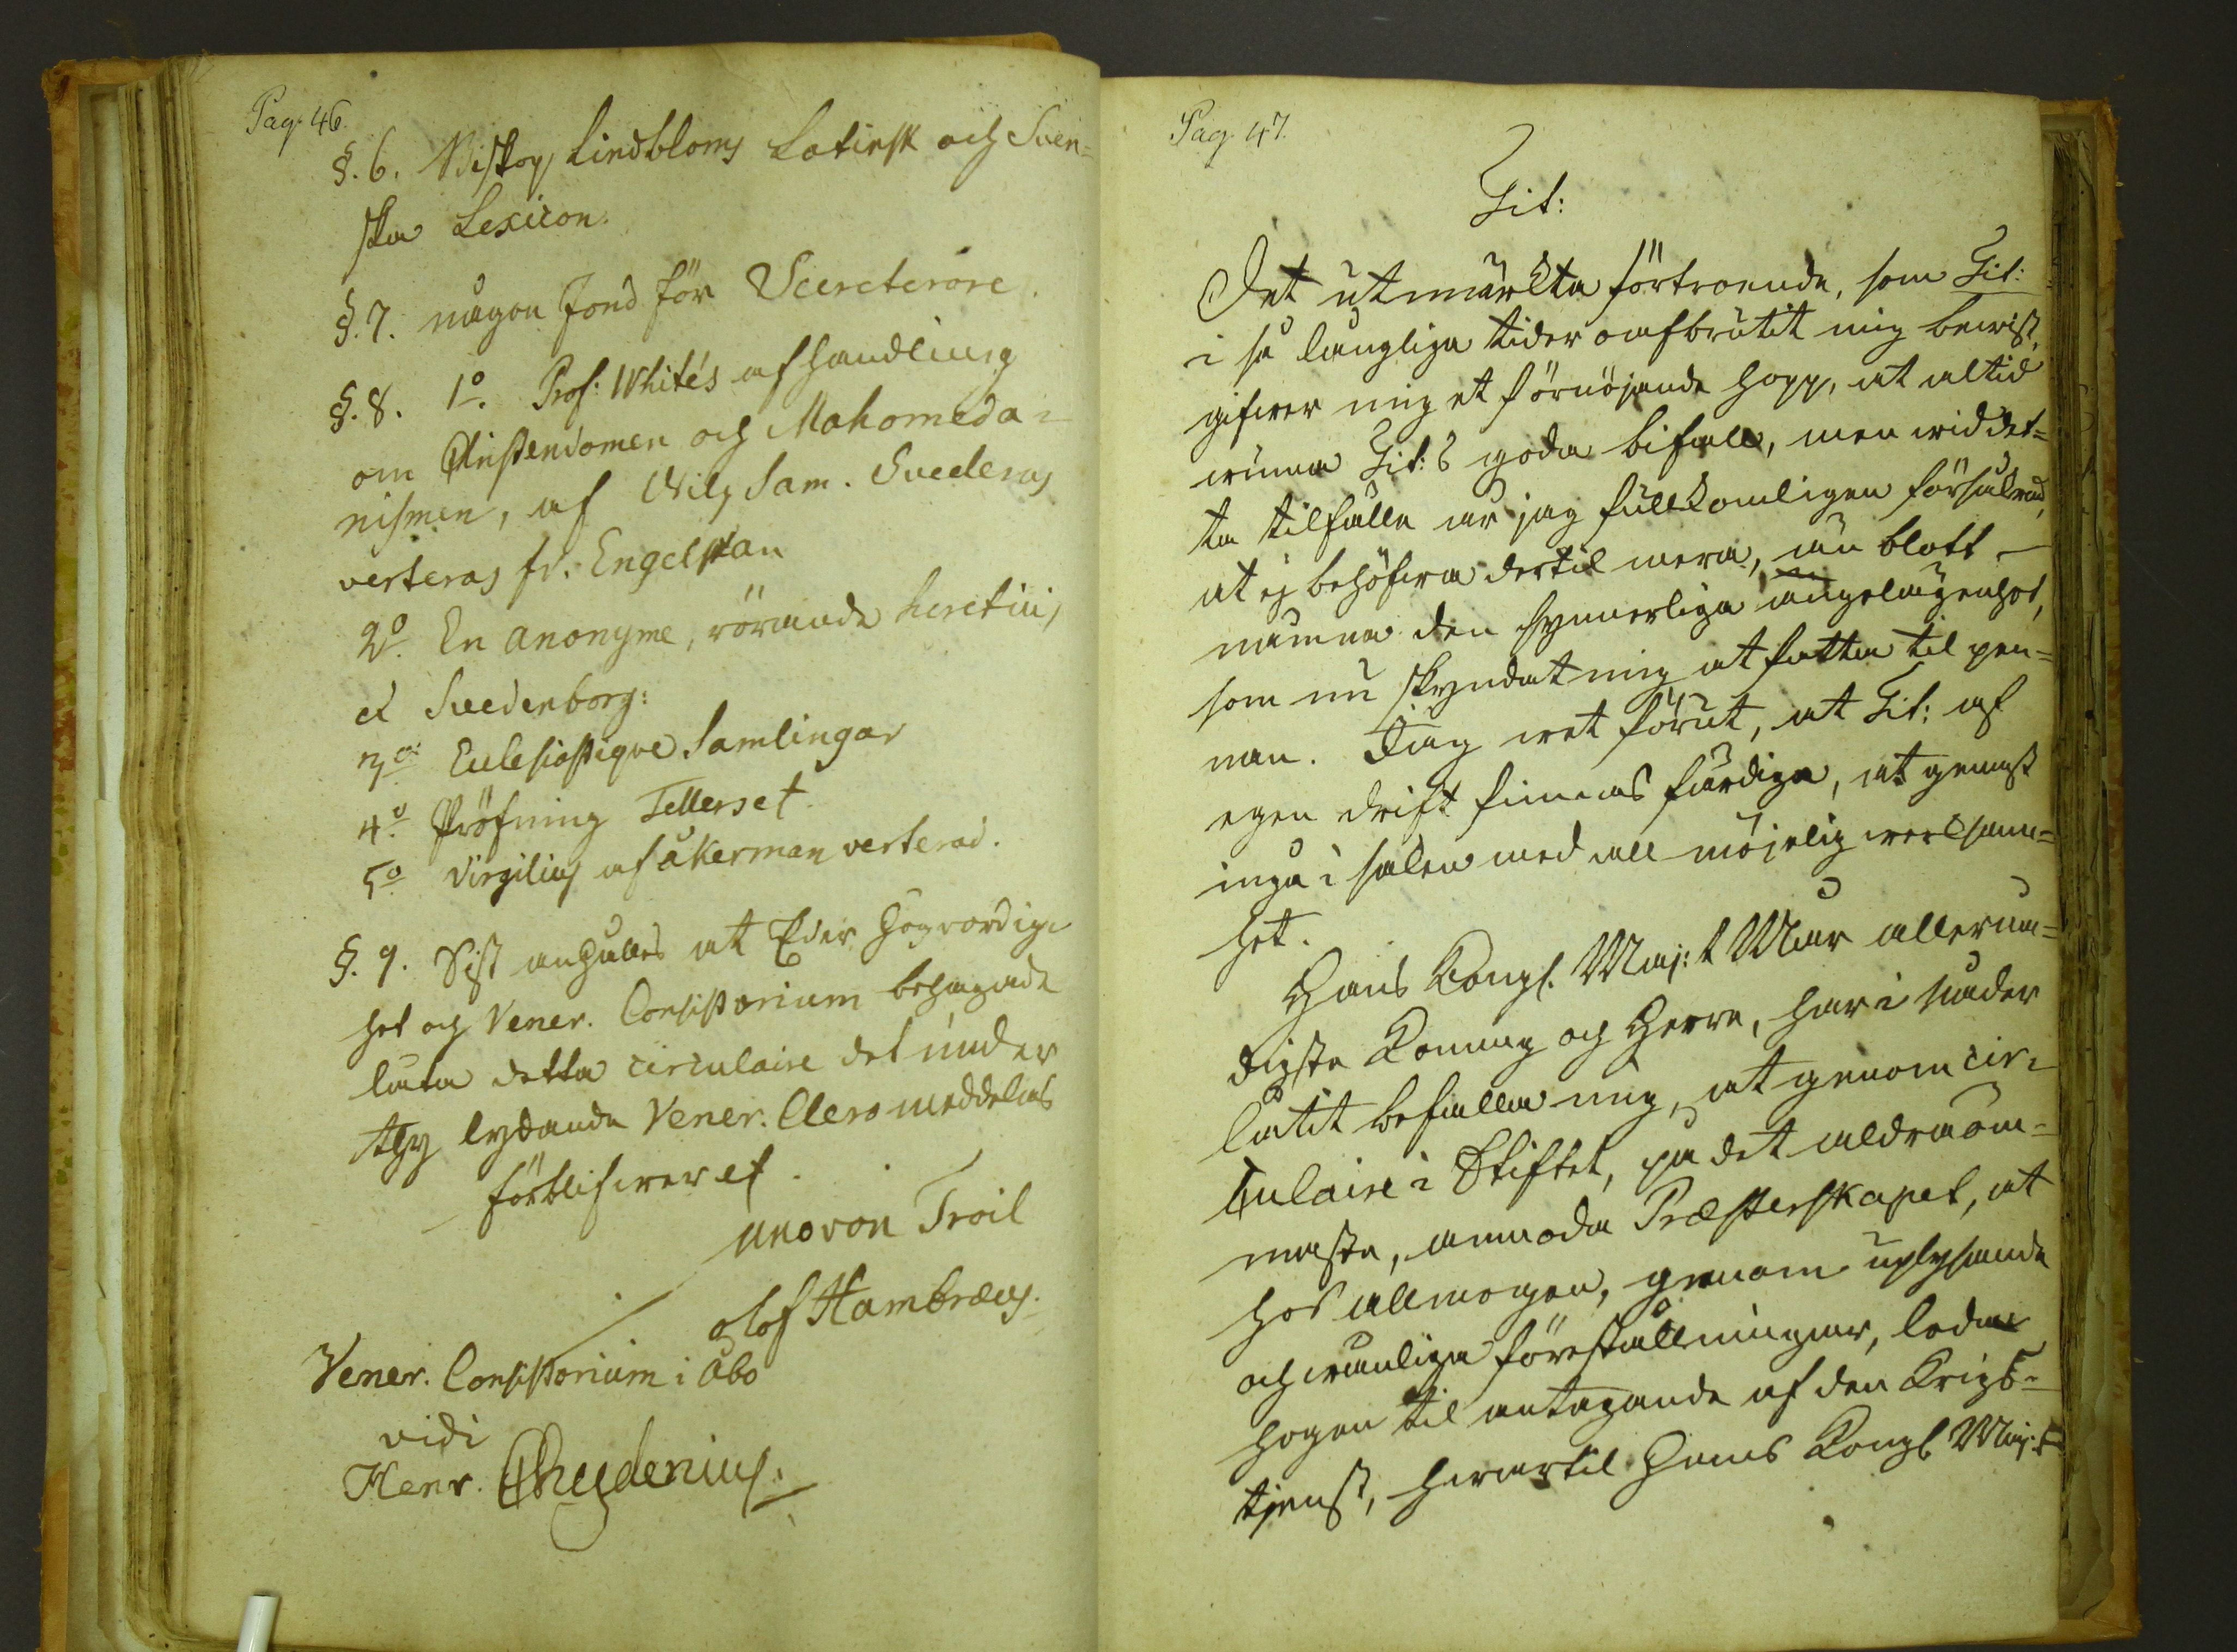 Pag. 46.
§. 6. Biskop Lindbloms Latinsk och Sven=
ska Lexicon.
§. 7. någon fond för Secreterare.
§. 8. 1o. Prof: White's afhandling
om Christendomen och Mahomeda=
nismen, af Sam. Svederus
verteras fr. Engelskan
2o. En anonyme, rörande
Svedenborg:
3o. Ecclesiastique Samlingar
4o. Pröfning Tellerset
5o. Virgilius af Åkerman verterad.
§. 9. Sist anhålles at Eder Högvördig=
het och Vener. Consistorium behagade
låta detta circulaire det under
lydande Vener. Clero meddelas
förblifwer etc.
Uno von Troil
Olof Hambræus.
Vener. Consistorium i Åbo
vidi
Henr. Chydenius.
Pag. 47.
Tit:
Det utmärkta förtroende, som Tit:
i så långliga tider oafbrutit mig bewist,
gifwer mig et förnöjande hopp, at altid
winna Tit:s goda bifall, men wid det=
ta tilfälle är jag fullkomligen försäkrad,
at ej behöfwa dertil mera, än blott
nämna den synnerliga angelägenhet,
som nu skyndat mig at fatta til pen=
nan. Jag wet förut, at Tit: af
egen drift finnas färdiga, at genast
ingå i saken med all möjelig werksam=
het.
Hans Kongl. Maj:t Wår allernå=
digste Konung och Herre, har i nåder
låtit befalla mig, at genom cir=
culaire i Stiftet, på det aldraöm=
maste, anmoda Præsterskapet, at
hos allmogen, genom uplysande
och wänliga föreställningar, leda
hogen til antagande af den Krigs=
tjenst, hwartil Hans Kongl Maj:t